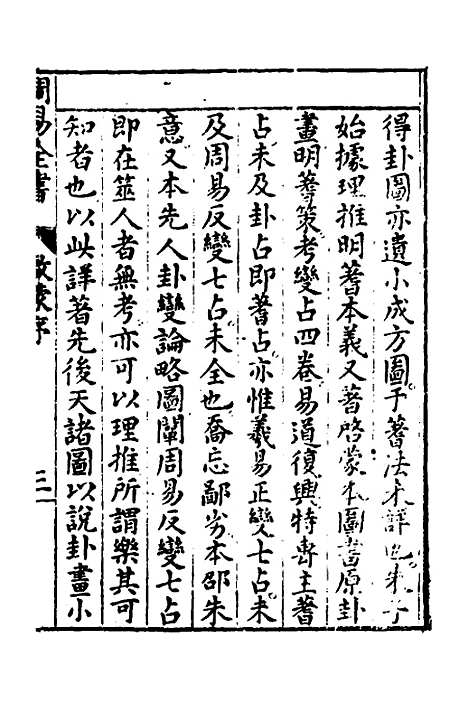 得卦圖亦遺小成方圖于蓍法未詳也朱子
始據理推明蓍本義又著啓蒙本圖書原卦
畫明蓍策考變占四卷易道復興特專主蓍
占未及卦占即蓍占亦惟羲易正變七占未
及周易反變七占未全也喬忘鄙劣本邵朱
意又本先人卦變論略圖闡周易反變七占
即在筮人者無考亦可以理推所謂樂其可
知者也以此詳著先後天諸圖以說卦畫小
周易全書
啟蒙序
三